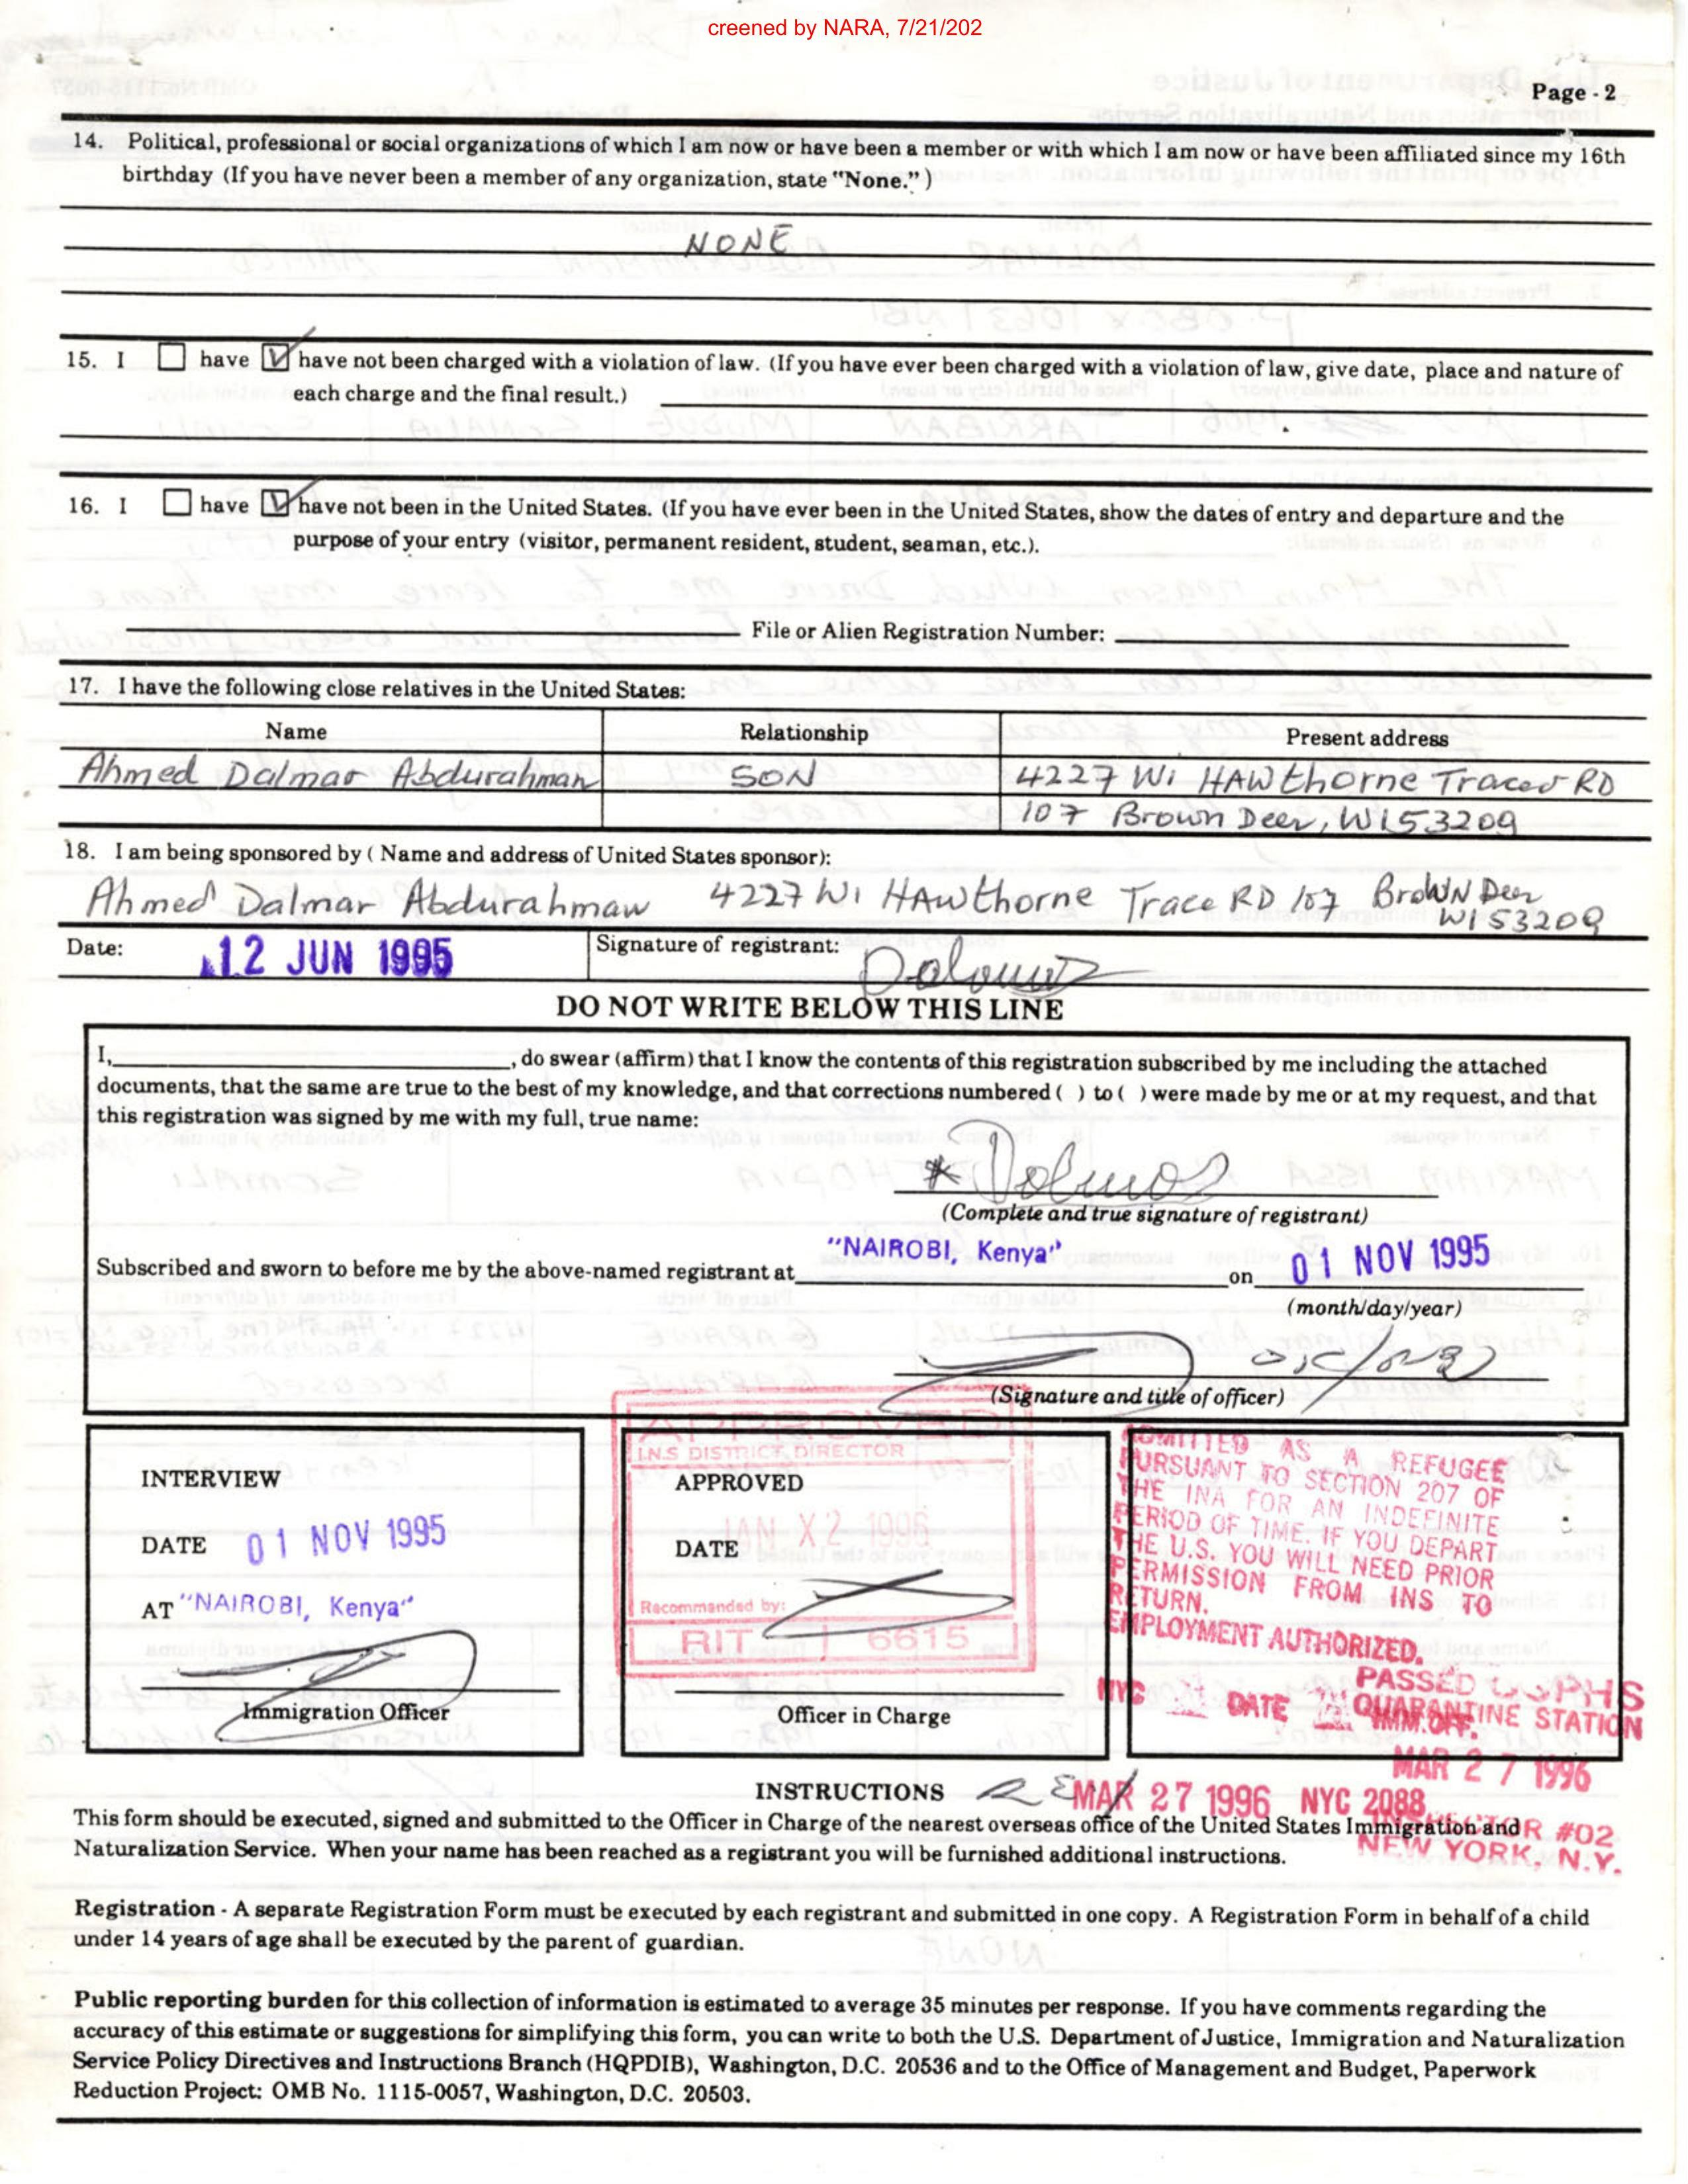 creened by NARA, 7/21/202
Page - 2
14. Political, professional or social organizations of which I am now or have been a member or with which I am now or have been affiliated since my 16th
birthday (If you have never been a member of any organization, state "None.")
NONE
15. I have have not been charged with a violation of law. (If you have ever been charged with a violation of law, give date, place and nature of
each charge and the final result.)
16. I have have not been in the United States. (If you have ever been in the United States, show the dates of entry and departure and the
purpose of your entry (visitor, permanent resident, student, seaman, etc.).
File or Alien Registration Number:
17. I have the following close relatives in the United States:
Name Relationship Present address
Ahmed Dalmar Abdurahman SON 4227 Wi HAWthorne Trace RD
107 Brown Deer, WI 53209
18. I am being sponsored by ( Name and address of United States sponsor):
Ahmed Dalmar Abdurahman 4227 Wi HAWthorne Trace RD 107 BroWN Deer
WI 53209
Date: 12 JUN 1995 Signature of registrant:
DO NOT WRITE BELOW THIS LINE
I, , do swear (affirm) that I know the contents of this registration subscribed by me including the attached
documents, that the same are true to the best of my knowledge, and that corrections numbered ( ) to ( ) were made by me or at my request, and that
this registration was signed by me with my full, true name:
(Complete and true signature of registrant)
Subscribed and sworn to before me by the above-named registrant at "NAIROBI, Kenya" on 01 NOV 1995
(month/day/year)
(Signature and title of officer)
APPROVED
I.N.S DISTRICT DIRECTOR
INTERVIEW
DATE 01 NOV 1995
AT "NAIROBI, Kenya"
Immigration Officer
APPROVED
DATE JAN X2 1996
Recommended by:
RIT 6615
Officer in Charge
ADMITTED AS A REFUGEE
PURSUANT TO SECTION 207 OF
THE INA FOR AN INDEFINITE
PERIOD OF TIME. IF YOU DEPART
THE U.S. YOU WILL NEED PRIOR
PERMISSION FROM INS TO
RETURN.
EMPLOYMENT AUTHORIZED.
PASSED USPHS
NYC DATE QUARANTINE STATION
IMM.OFF.
MAR 27 1996
INSTRUCTIONS MAR 27 1996 NYC 2088
INSPECTOR #02
NEW YORK, N.Y.
This form should be executed, signed and submitted to the Officer in Charge of the nearest overseas office of the United States Immigration and
Naturalization Service. When your name has been reached as a registrant you will be furnished additional instructions.
Registration - A separate Registration Form must be executed by each registrant and submitted in one copy. A Registration Form in behalf of a child
under 14 years of age shall be executed by the parent of guardian.
Public reporting burden for this collection of information is estimated to average 35 minutes per response. If you have comments regarding the
accuracy of this estimate or suggestions for simplifying this form, you can write to both the U.S. Department of Justice, Immigration and Naturalization
Service Policy Directives and Instructions Branch (HQPDIB), Washington, D.C. 20536 and to the Office of Management and Budget, Paperwork
Reduction Project: OMB No. 1115-0057, Washington, D.C. 20503.